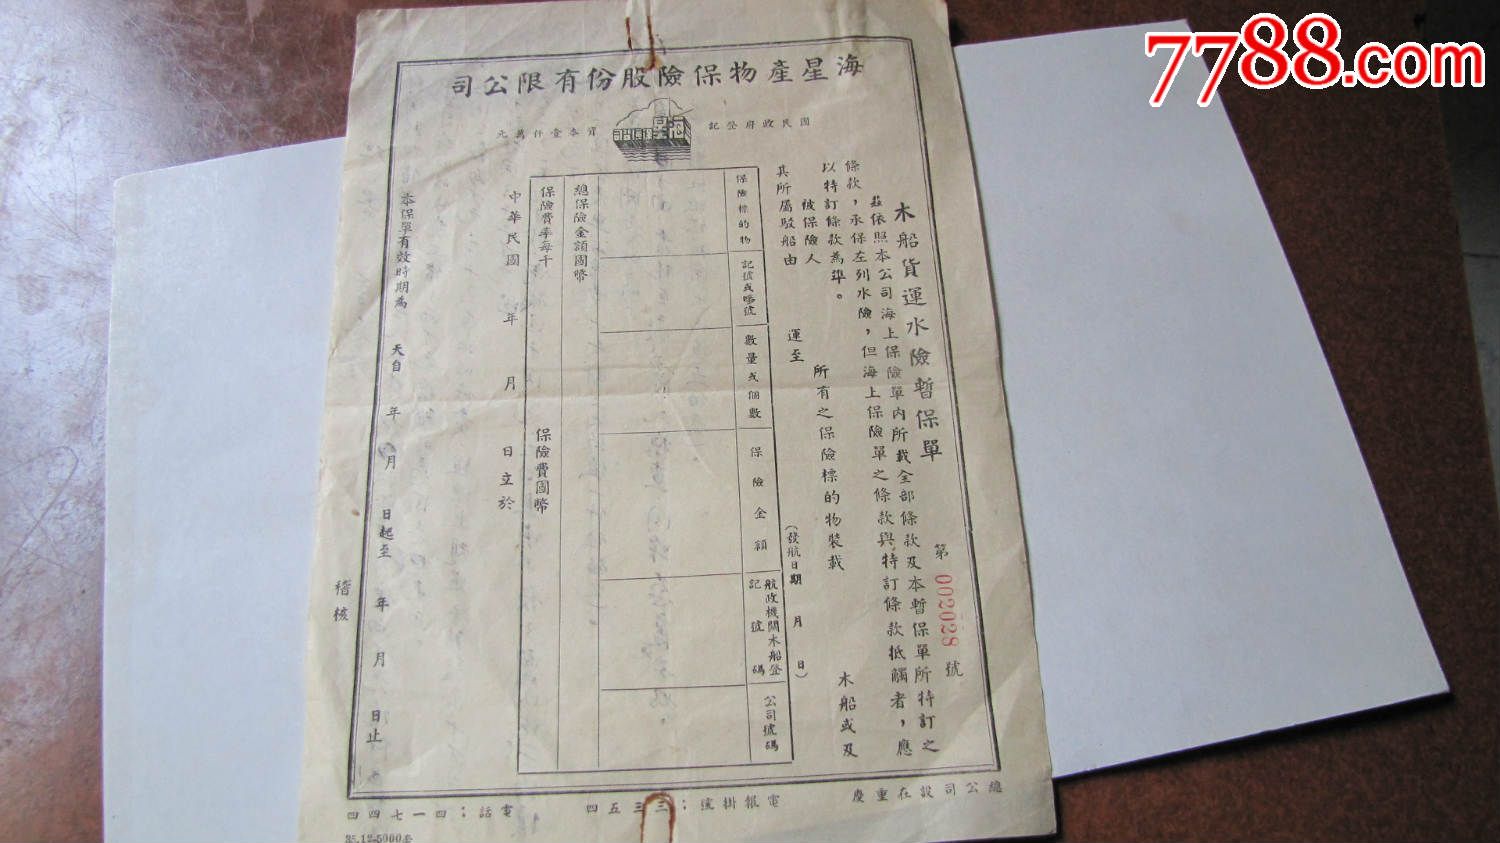 7788.com
海星產物保險股份有限公司
國民政府登記
資本壹仟萬元
海星
木船貨運水險暫保單
第002028號
茲依照本公司海上保險單內所載全部條款及本暫保單所特訂之
條款，承保左列水險，但海上保險單之條款與特訂條款抵觸者，應
以特訂條款為準。
被保險人 所有之保險標的物裝載 木船或及
其所屬駁船由 運至 （發航日期 月 日）
保險標的物
記號或嘜號
數量或個數
保險金額
航政機關木船登記號碼
公司號碼
總保險金額國幣
保險費率每千 保險費國幣
中華民國 年 月 日立於
本保單有效時期為 天自 年 月 日起至 年 月 日止
稽核
總公司設在重慶
電報掛號：三三五四
電話：四一七四四
35.12-5000套